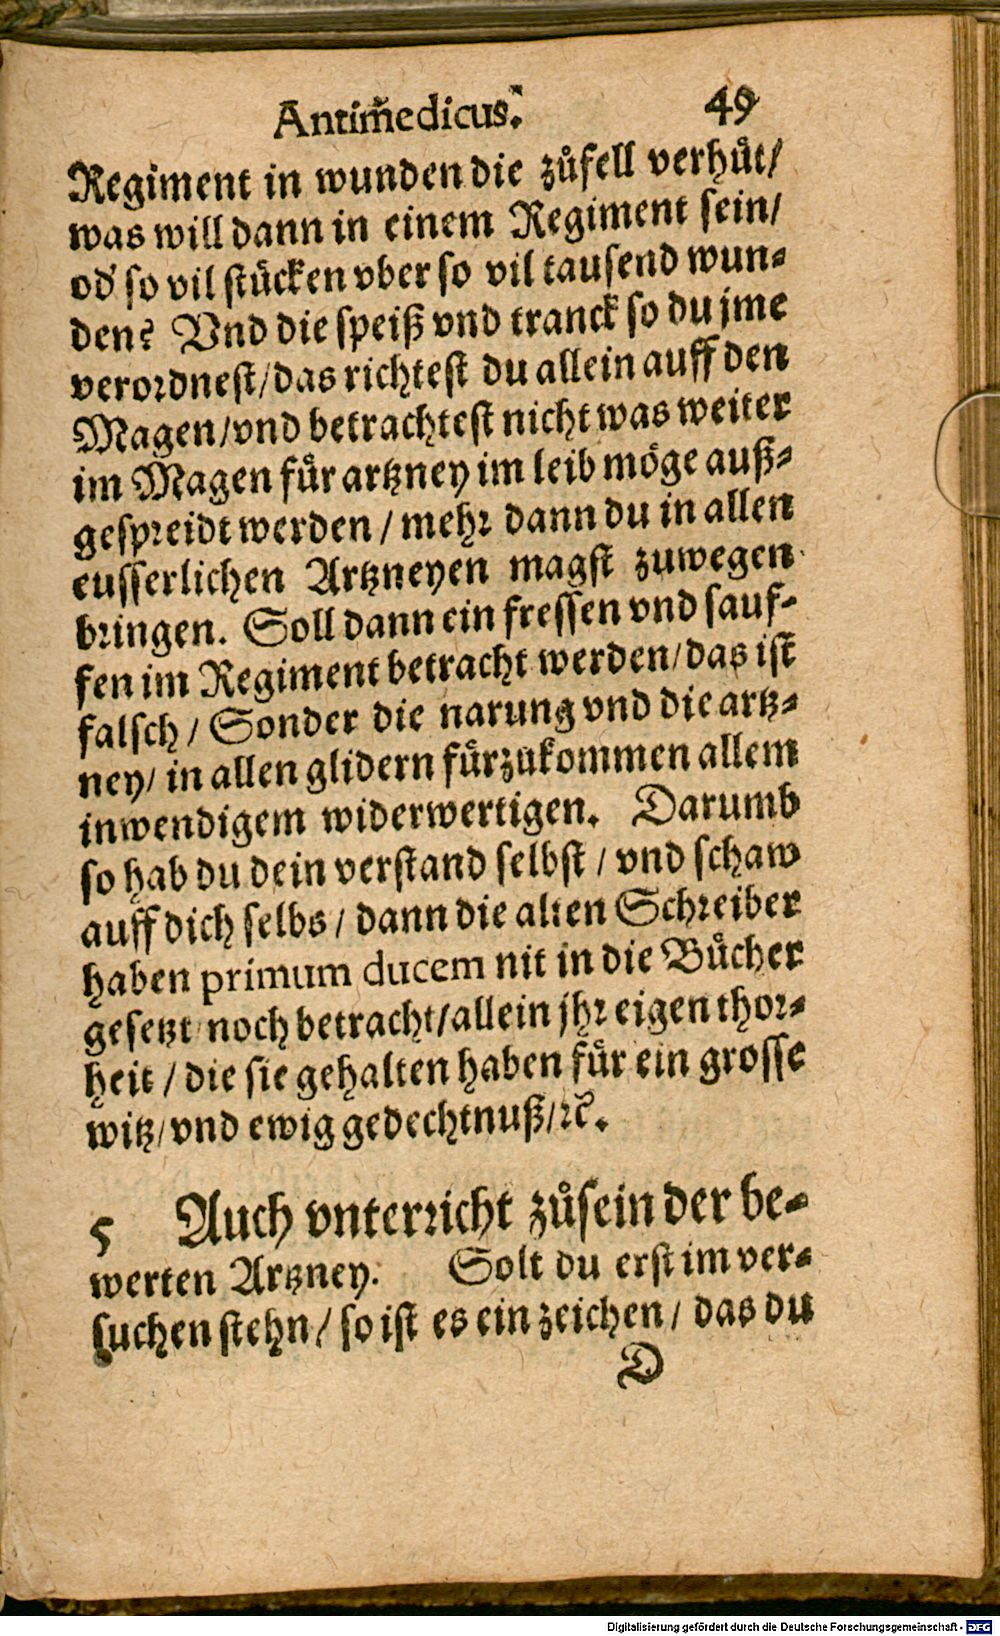 Antim̃edicus. 49
Regiment in wunden die zůfell verhůt/
was will dann in einem Regiment sein/
od' so vil stücken vber so vil tausend wun-
den? Vnd die speiß vnd tranck so du jme
verordnest/das richtest du allein auff den
Magen/vnd betrachtest nicht was weiter
im Magen für artzney im leib möge auß-
gespreidt werden / mehr dann du in allen
eusserlichen Artzneyen magst zuwegen
bringen. Soll dann ein fressen vnd sauf-
fen im Regiment betracht werden/das ist
falsch / Sonder die narung vnd die artz-
ney/ in allen glidern fürzukommen allem
inwendigem widerwertigen. Darumb
so hab du dein verstand selbst / vnd schaw
auff dich selbs / dann die alten Schreiber
haben primum ducem nit in die Bücher
gesetzt noch betracht/allein jhr eigen thor-
heit / die sie gehalten haben für ein grosse
witz/vnd ewig gedechtnuß/ꝛc.
5 Auch vnterricht zůsein der be-
werten Artzney. Solt du erst im ver-
suchen stehn / so ist es ein zeichen / das du
D
Digitalisierung gefördert durch die Deutsche Forschungsgemeinschaft - DFG